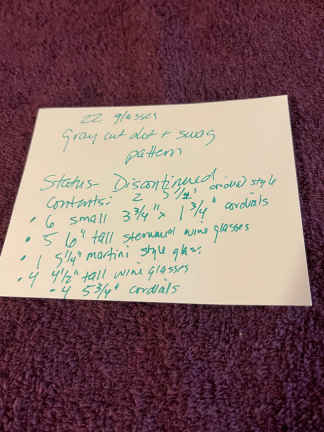 22 glasses
Gray cut dot + swag
pattern
Status - Discontinued
Contents: 2 5 1/2" style
• 6 small 3 3/4" x 1 3/4" cordials
• 5 6" tall stemmed wine glasses
• 1 5 1/4" martini style glass
• 4 4 1/2" tall wine glasses
• 4 5 3/4" cordials